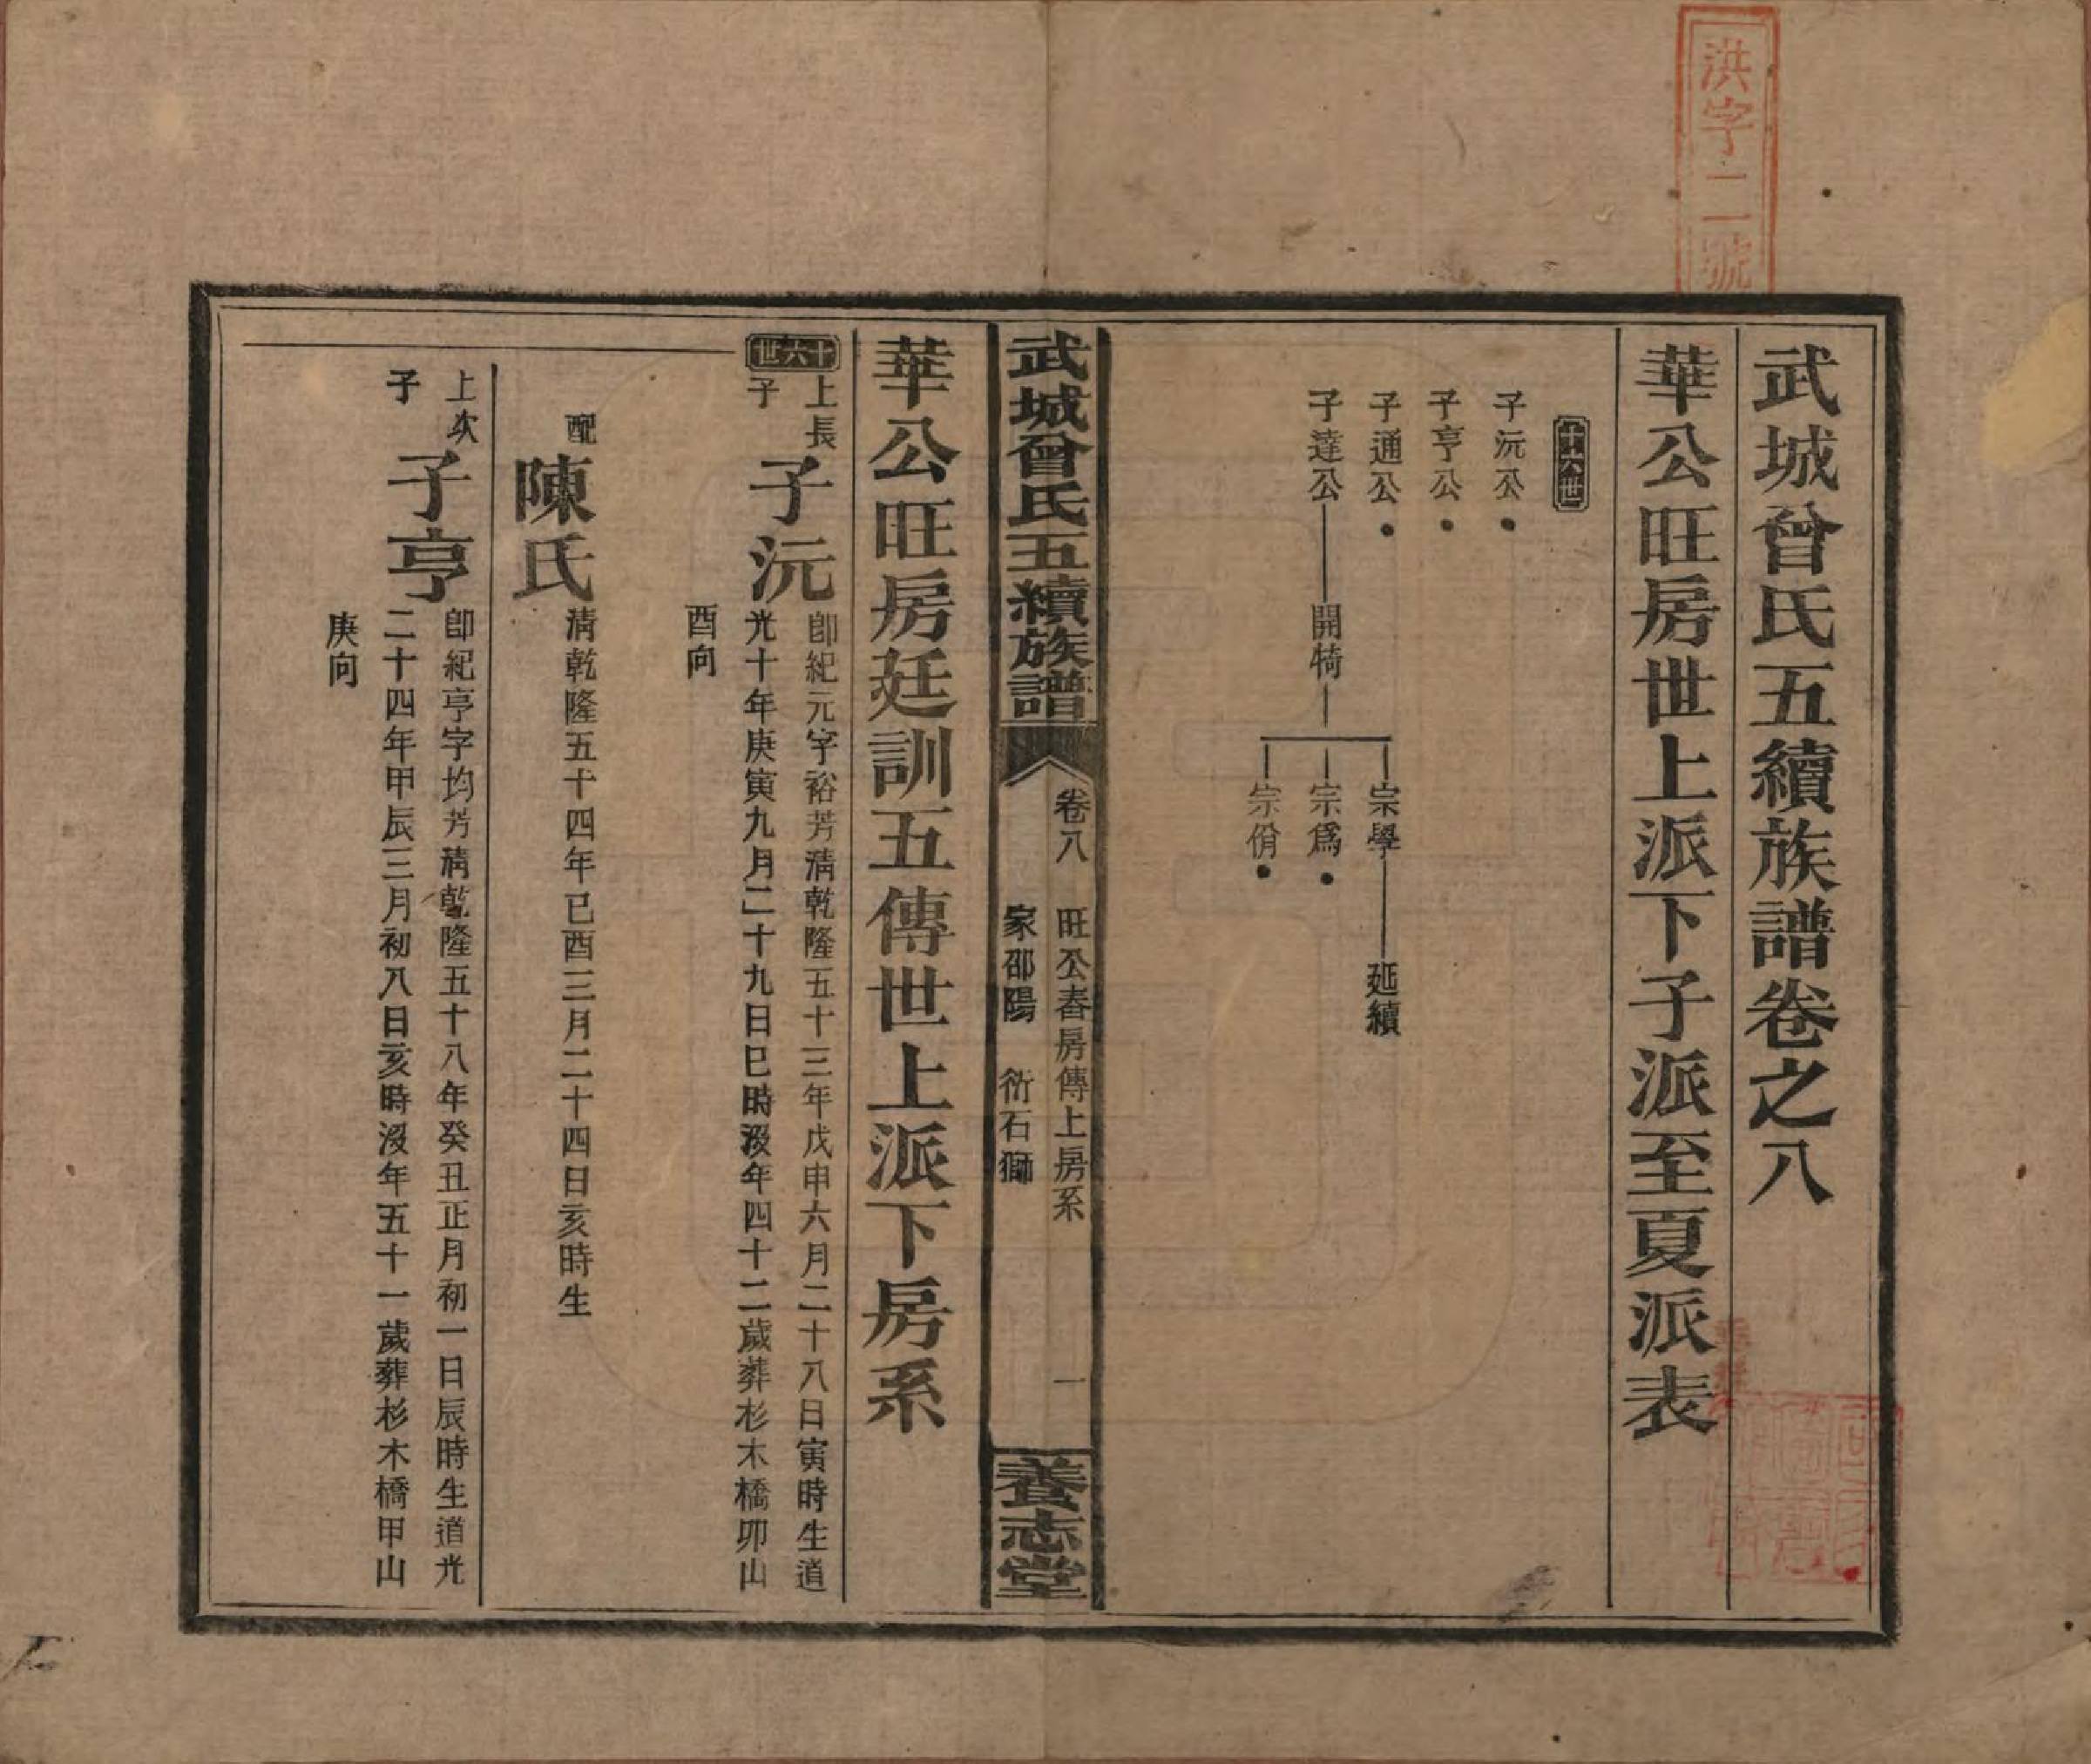 洪字二號
武城曾氏五續族譜卷之八
華公旺房世上派下子派至夏派表
十六世
子沅公●
子亨公●
子通公●
子達公
開犄
宗學
延續
宗爲●
宗佾●
武城曾氏五續族譜
卷八 旺公春房傳上房系 一
家邵陽 衍石獅
養志堂
華公旺房廷訓五傳世上派下房系
十六世
上長子
子沅
卽紀元字裕芳清乾隆五十三年戊申六月二十八日寅時生道
光十年庚寅九月二十九日巳時沒年四十二歲葬杉木橋卯山
酉向
配
陳氏
清乾隆五十四年己酉三月二十四日亥時生
上次子
子亨
卽紀亨字均芳清乾隆五十八年癸丑正月初一日辰時生道光
二十四年甲辰三月初八日亥時沒年五十一歲葬杉木橋甲山
庚向